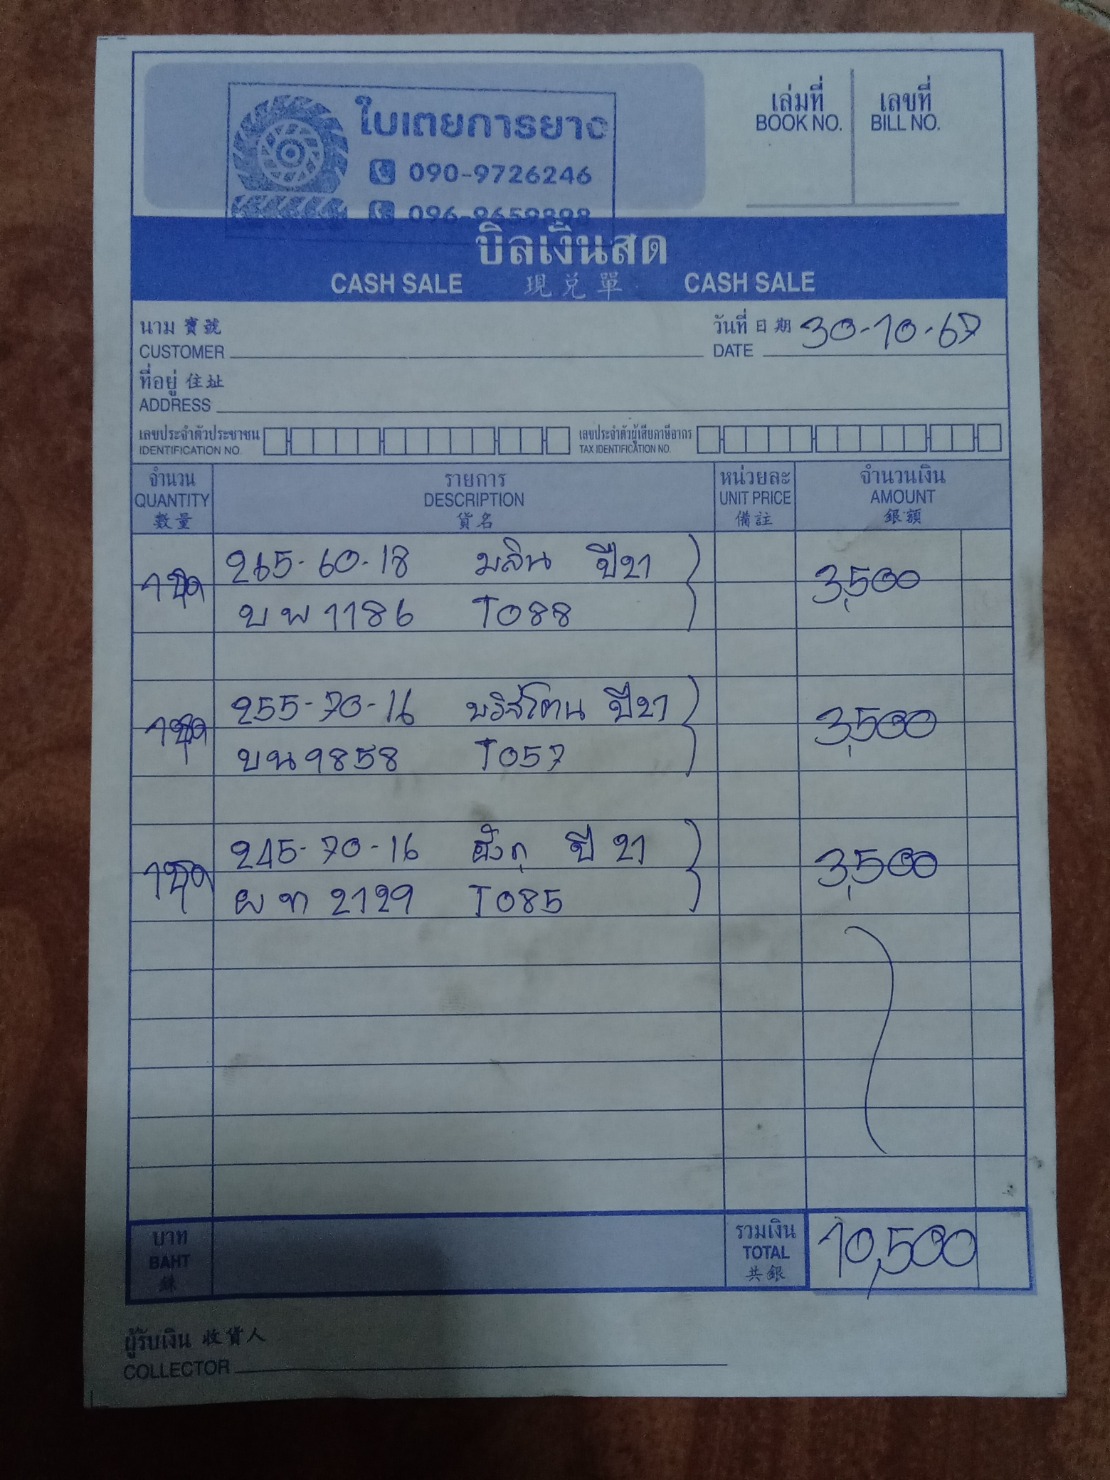 ใบเตยการยาง
090-9726246
เล่มที่ เลขที่
BOOK NO. BILL NO.
บิลเงินสด
CASH SALE 現兑單 CASH SALE
นาม 寶號
CUSTOMER
วันที่ 日期 30-10-67
DATE
ที่อยู่ 住址
ADDRESS
เลขประจำตัวประชาชน
IDENTIFICATION NO.
เลขประจำตัวผู้เสียภาษีอากร
TAX IDENTIFICATION NO.
จำนวน รายการ หน่วยละ จำนวนเงิน
QUANTITY DESCRIPTION UNIT PRICE AMOUNT
數量 貨名 備註 銀額
1ชุด 265-60-18 มลิน ปี21 3,500
บพ1186 T088
1ชุด 255-70-16 บริสโตน ปี21 3,500
บน9858 T057
1ชุด 245-70-16 ปี 21 3,500
ผท 2129 T085
บาท รวมเงิน 10,500
BAHT TOTAL
銖 共銀
ผู้รับเงิน 收貨人
COLLECTOR